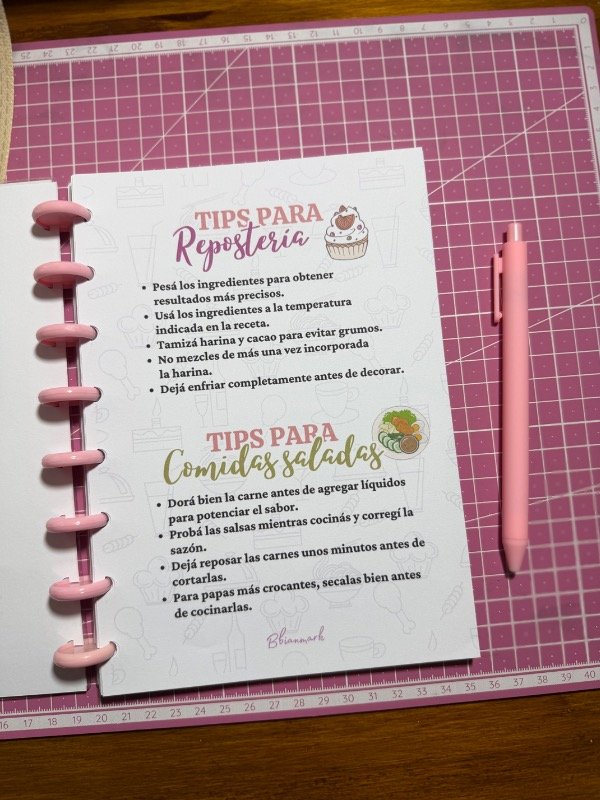 TIPS PARA
Repostería
• Pesá los ingredientes para obtener
resultados más precisos.
• Usá los ingredientes a la temperatura
indicada en la receta.
• Tamizá harina y cacao para evitar grumos.
• No mezcles de más una vez incorporada
la harina.
• Dejá enfriar completamente antes de decorar.
TIPS PARA
Comidas saladas
• Dorá bien la carne antes de agregar líquidos
para potenciar el sabor.
• Probá las salsas mientras cocinás y corregí la
sazón.
• Dejá reposar las carnes unos minutos antes de
cortarlas.
• Para papas más crocantes, secalas bien antes
de cocinarlas.
Bbianmark
16 17 18 19 20 21 22 23 24 25 26 27 28 29 30 31 32 33 34 35 36 37 38 39 40